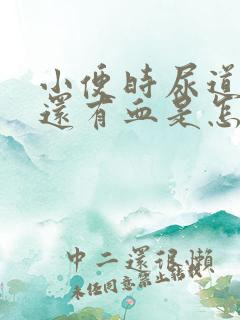 小便時尿道
還有血是怎
中二還很懶
未经同意禁止转载